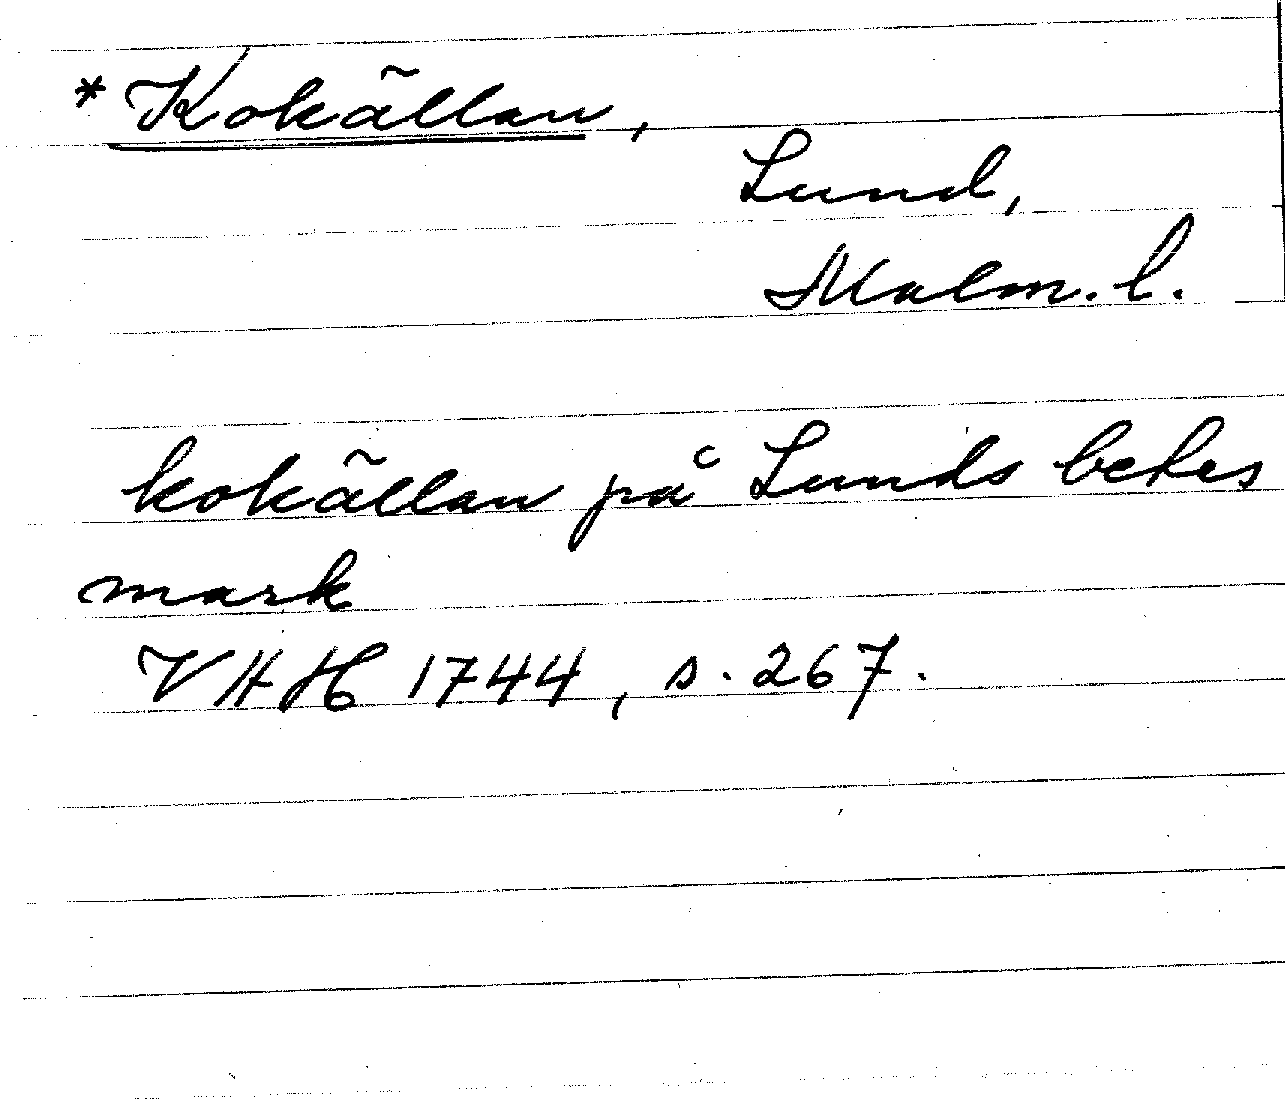 * Kokällan,
Lund,
Malm. l.
kokällan på Lunds betes
mark
VHH 1744, s. 267.